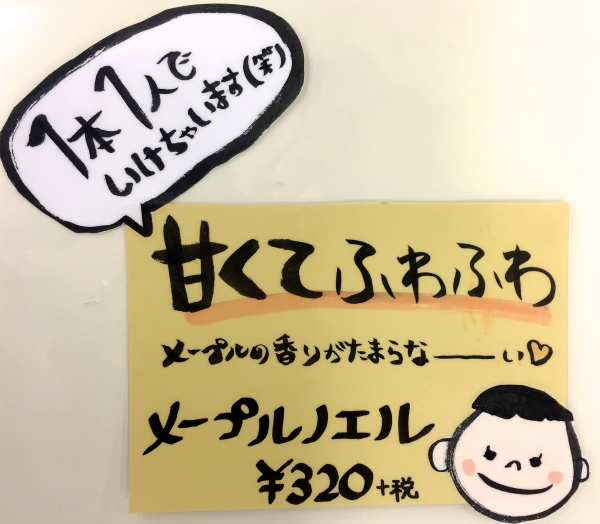 1本1人で
いけちゃいます(笑)
甘くてふわふわ
メープルの香りがたまらな――い♡
メープルノエル
¥320+税